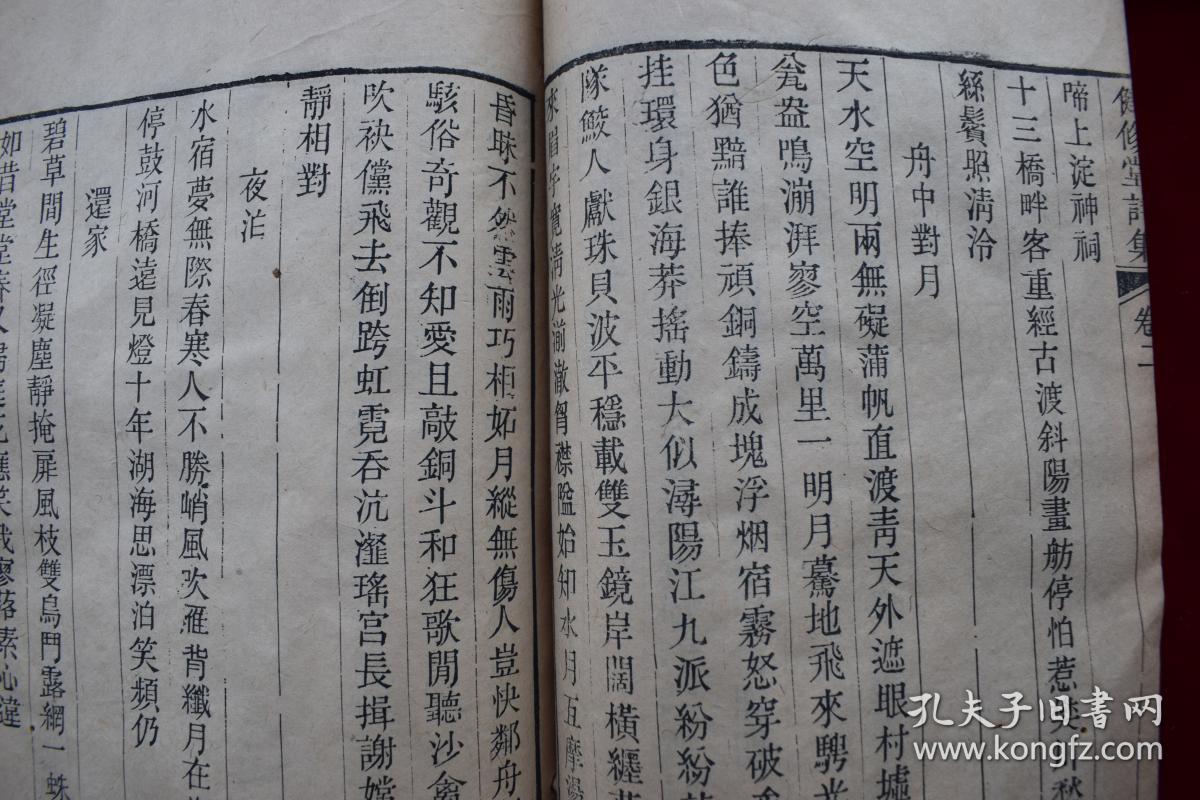 健修堂詩集 卷二
啼上淀神祠
十三橋畔客重經古渡斜陽畫舫停怕惹
絲鬢照清泠
舟中對月
天水空明兩無礙蒲帆直渡青天外遮眼村墟
瓮盎鳴澎湃寥空萬里一明月驀地飛來騁光
色猶黯誰捧頑銅鑄成塊浮烟宿霧怒穿破
挂環身銀海莽搖動大似潯陽江九派紛紛
隊鮫人獻珠貝波平穩載雙玉鏡岸闊橫纏
清光湔澈胷襟隘始知水月互摩盪
昏昧不然雲雨巧相妬月縱無傷人豈快鄰舟
駭俗奇觀不知愛且敲銅斗和狂歌閒聽沙禽
吹袂儻飛去倒跨虹霓吞沆瀣瑤宫長揖謝嫦
靜相對
夜泊
水宿夢無際春寒人不勝峭風吹雁背纖月在
停鼓河橋遠見燈十年湖海思漂泊笑頻仍
還家
碧草間生徑凝塵靜掩扉風枝雙鳥鬥露網一蛛
如昔堂堂春又歸應笑我寥落素心違
孔夫子旧书网
www.kongfz.com